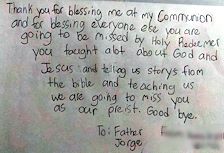 Thank you for blessing me at my Communion
and for blessing everyone else you are
going to be missed by Holy Redeemer
you taught alot about God and
Jesus and telling us storys from
the bible and teaching us
we are going to miss you
as our preist. Good bye.
To: Father
Jorge